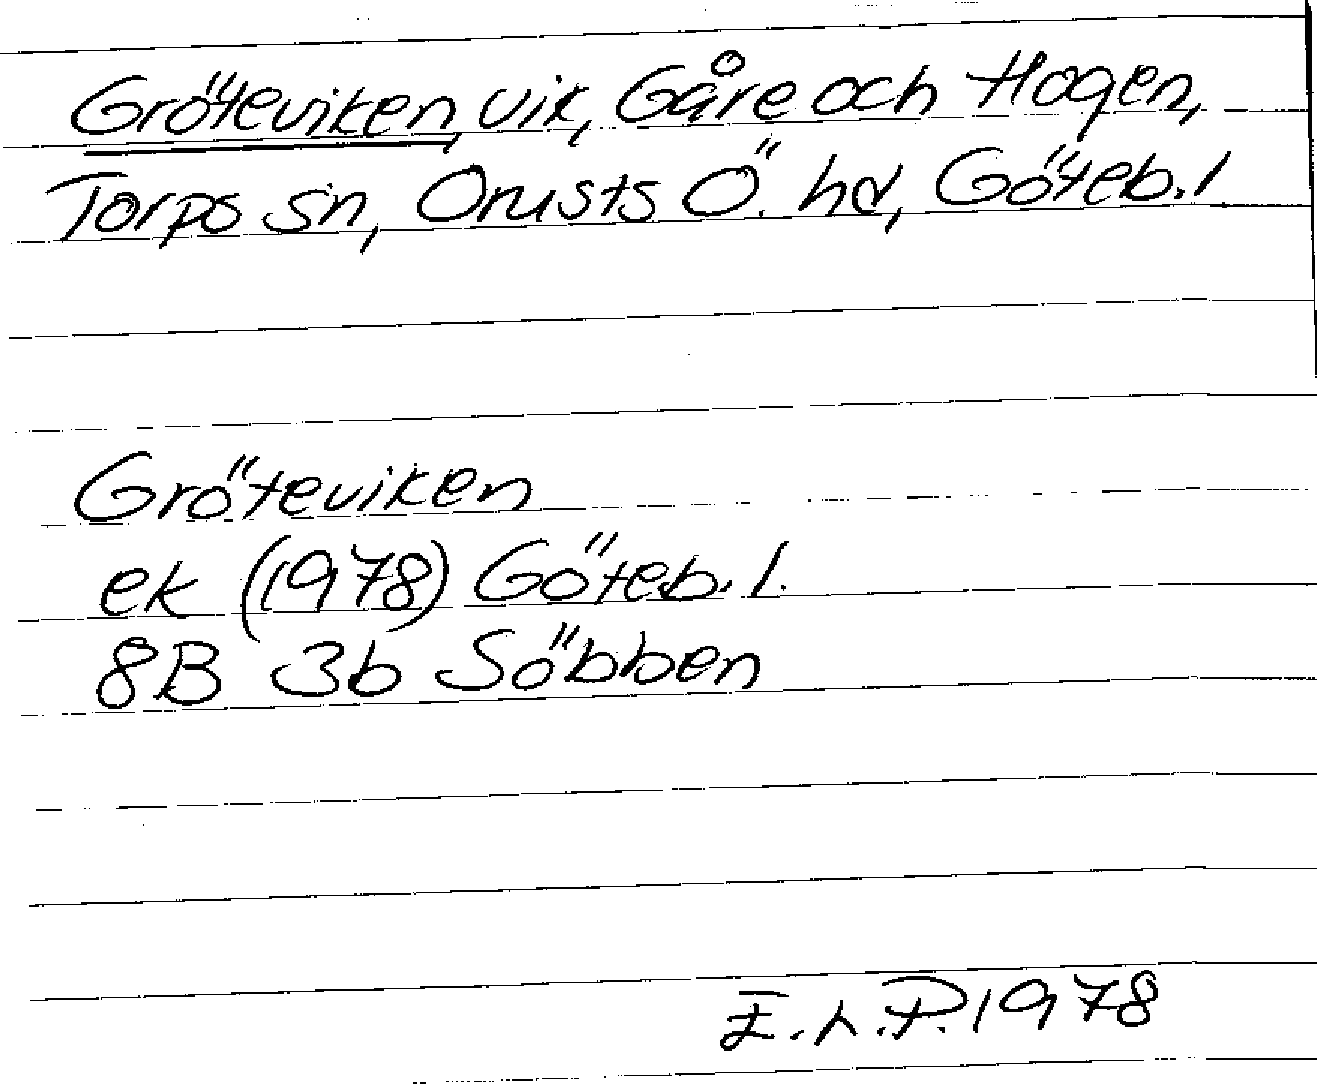 Gröteviken, vik, Gåre och Hogen,
Torps sn, Orusts Ö. hd, Göteb. l
Gröteviken
ek (1978) Göteb. l.
8B 3b Söbben
E.L.P. 1978